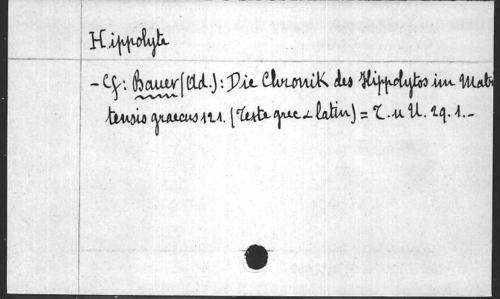 Hippolyte
- Cf: Bauer (Ad.): Die Chronik des Hippolytos im Matri
tensis graecus 121. (Texte grec & latin) = T. u U. 29. 1. -